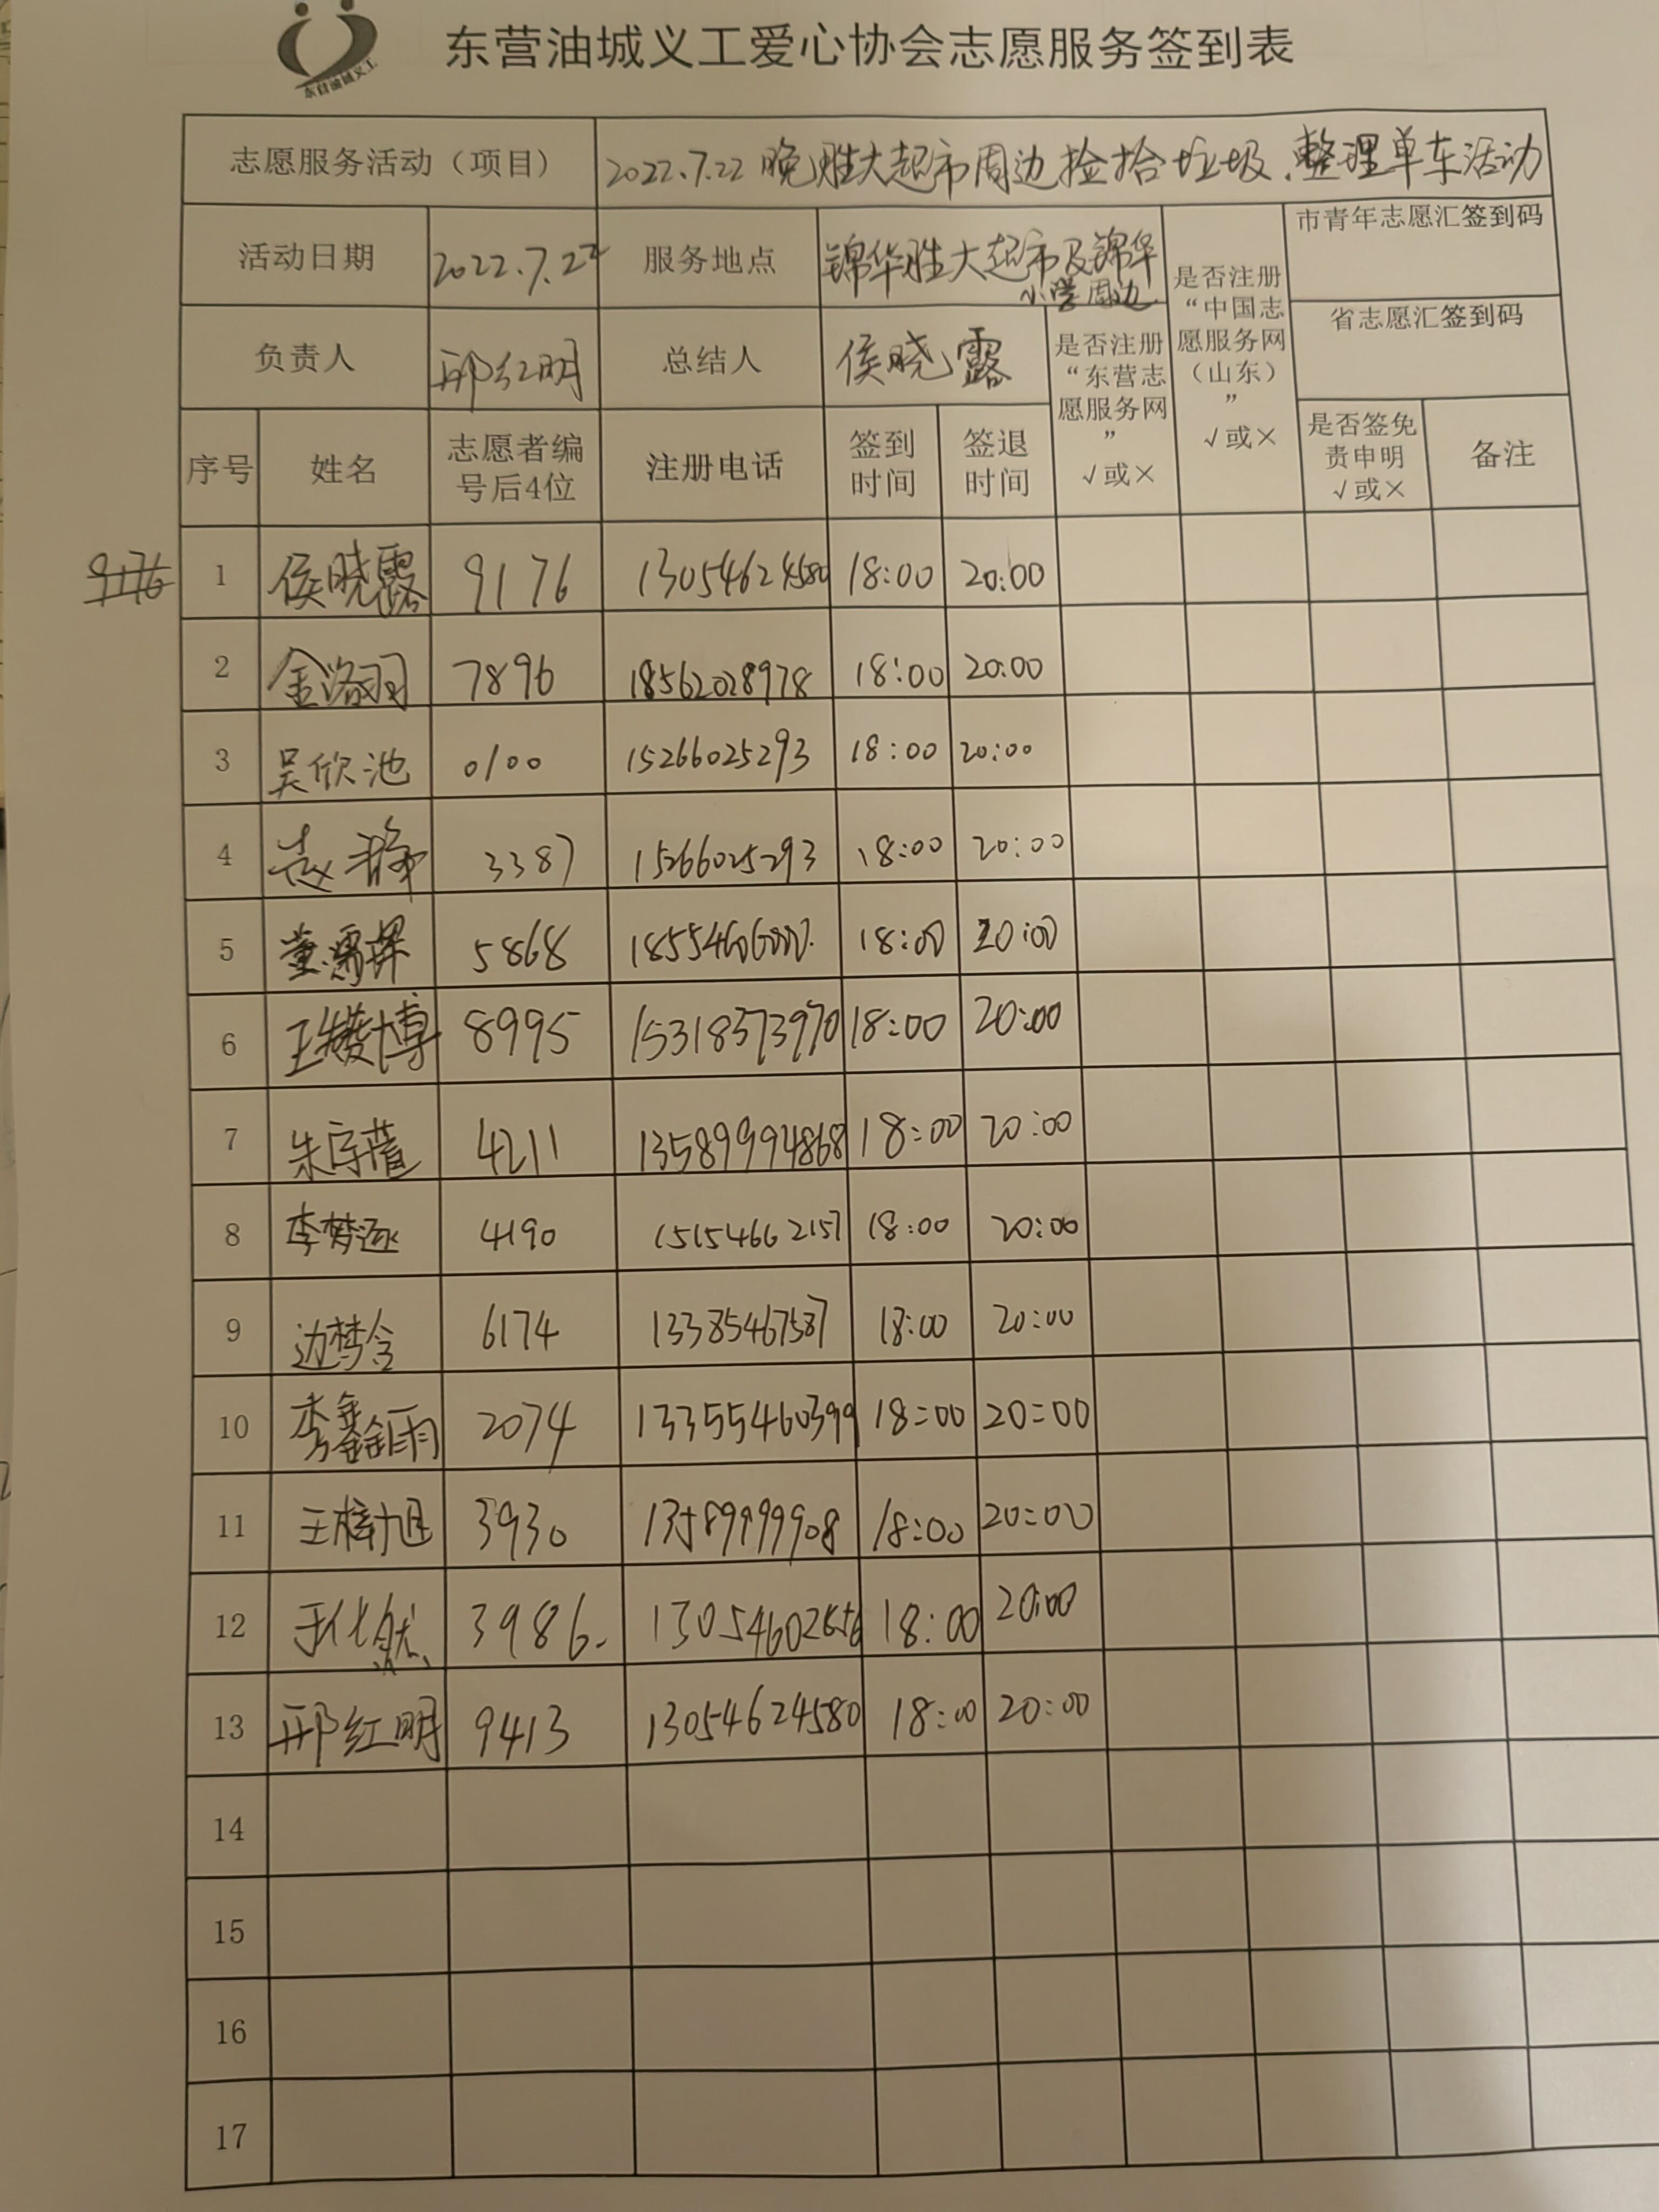 东营油城义工
东营油城义工爱心协会志愿服务签到表
志愿服务活动（项目） 2022.7.22 晚胜大超市周边捡拾垃圾、整理单车活动
活动日期 2022.7.22 服务地点 锦华胜大超市及锦华小学周边 是否注册“中国志愿服务网（山东）” √或× 市青年志愿汇签到码
负责人 邢红明 总结人 侯晓露 是否注册“东营志愿服务网” √或× 省志愿汇签到码
序号 姓名 志愿者编号后4位 注册电话 签到时间 签退时间 是否签免责申明 √或× 备注
9176 1 侯晓露 9176 13054624580 18:00 20:00
2 金洛羽 7896 18562028978 18:00 20:00
3 吴欣池 0100 15266025293 18:00 20:00
4 3387 15266025293 18:00 20:00
5 5868 18:00 20:00
6 8995 15318373970 18:00 20:00
7 4211 13589994868 18:00 20:00
8 李梦逐 4190 15154662157 18:00 20:00
9 边梦含 6174 13385467587 18:00 20:00
10 李鑫雨 2074 13355460399 18:00 20:00
11 王梓旭 3930 13589999908 18:00 20:00
12 3986. 18:00 20:00
13 邢红明 9413 13054624580 18:00 20:00
14
15
16
17